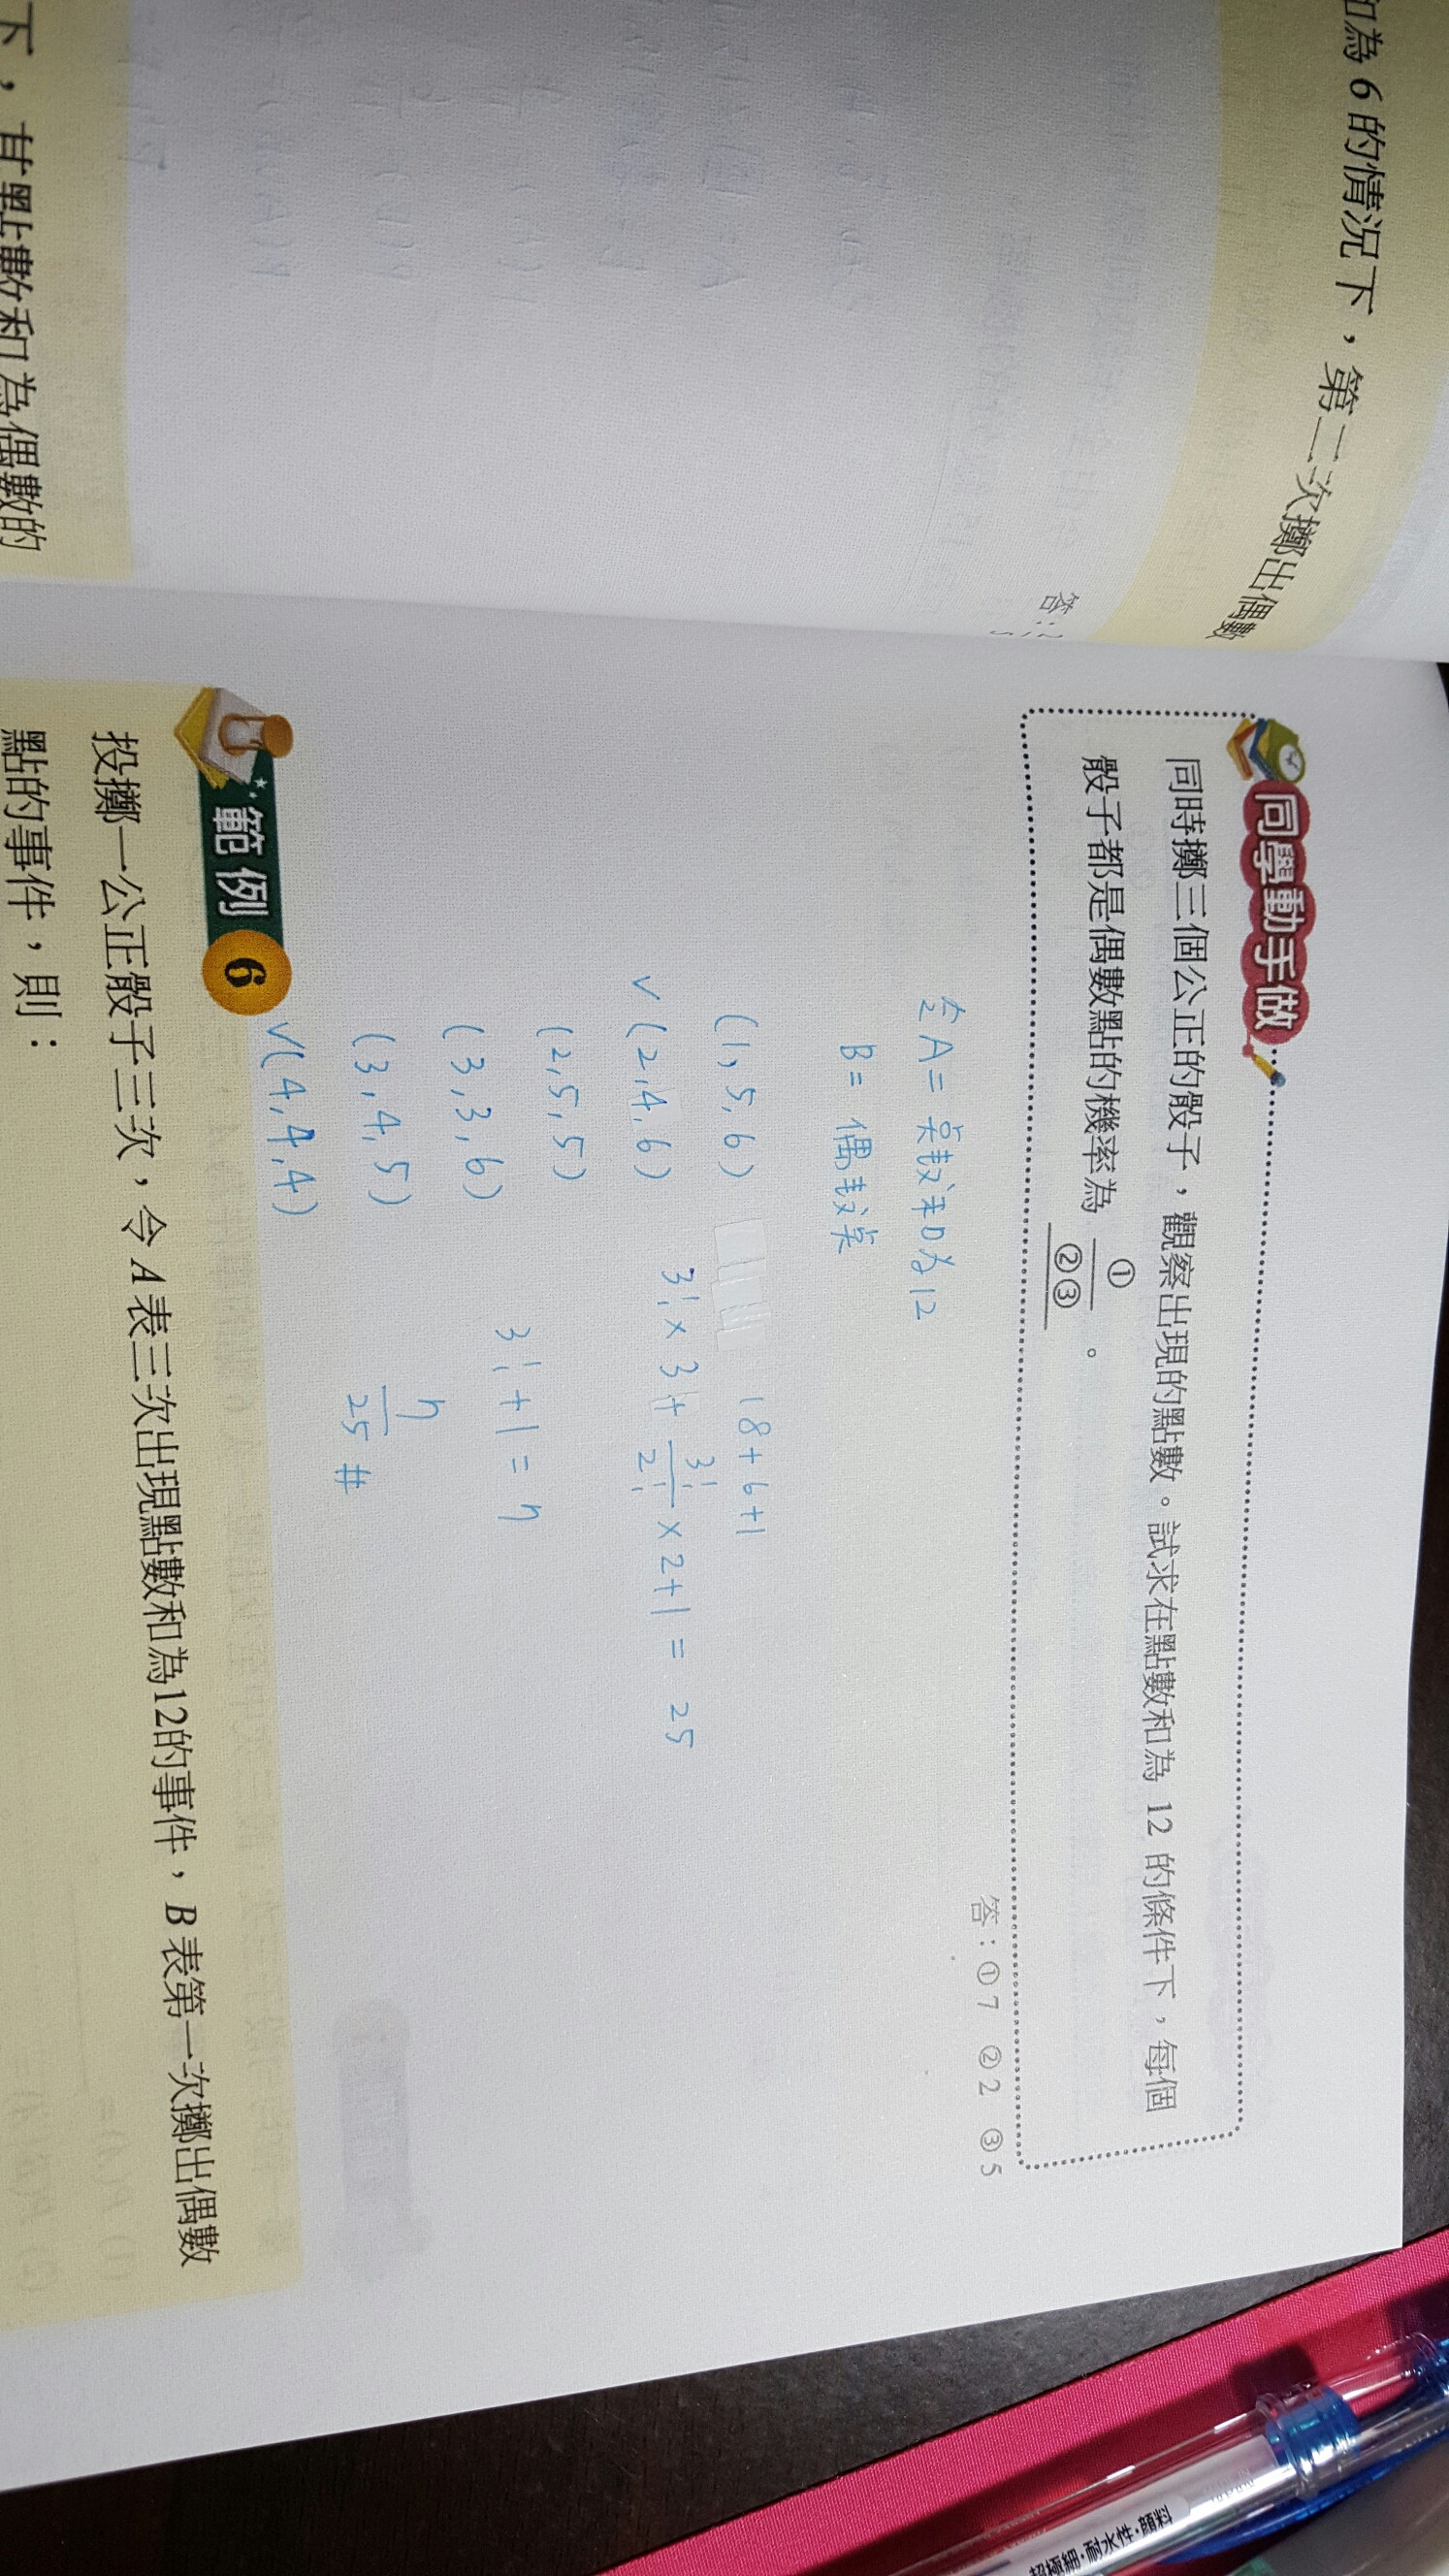 的情況下，第二次擲出偶數
答：
下，
點數和為偶數的
同學動手做
同時擲三個公正的骰子，觀察出現的點數。試求在點數和為 12 的條件下，每個
骰子都是偶數點的機率為 ①/②③ 。
答：①7 ②2 ③5
A = 点数和为12
B = 偶数点
(1, 5, 6)
18+6+1
√ (2, 4, 6)
3! × 3 + 3!/2! × 2 + 1 = 25
(2, 5, 5)
(3, 3, 6)
3! + 1 = 7
(3, 4, 5)
7/25 #
√ (4, 4, 4)
範例 6
投擲一公正骰子三次，令 A 表三次出現點數和為12的事件，B 表第一次擲出偶數
點的事件，則：
超極細・耐水性・顔料